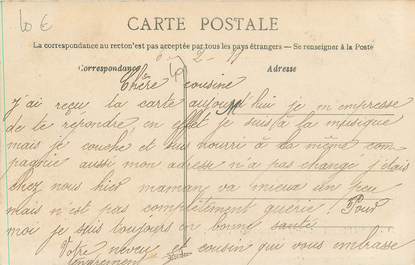 10 €
CARTE POSTALE
La correspondance au recto n'est pas acceptée par tous les pays étrangers — Se renseigner à la Poste
Correspondance
Adresse
Chère cousine
j'ai reçu la carte aujourd'hui je m'empresse
de te répondre en effet je suis à la musique
mais je couche et suis nourri à da même com-
pagnie aussi mon adresse n'a pas changé j'etais
chez nous hier maman va mieux un peu
mais n'est pas complètement guerie ! Pour
moi je suis toujours en bonne santé
Votre neveu et cousin qui vous embrasse
tendrement